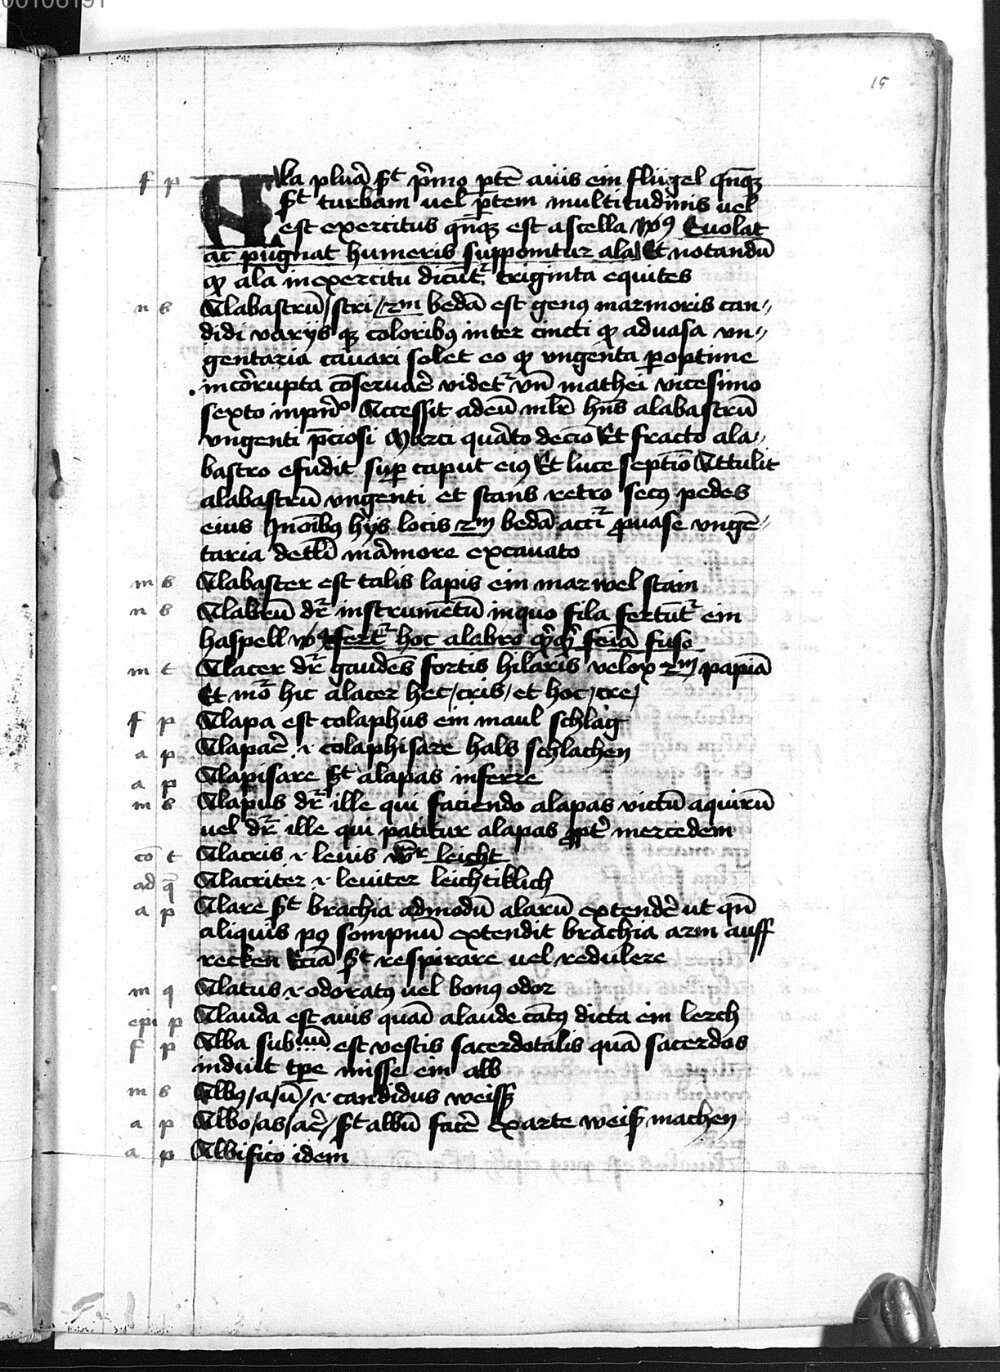 15
f p Ala pluã ſt p̃mo ptẽ auis ein flugel qñqꝫ
ſt turbam uel p̃tem multitudinis uel
est exercitus qñqꝫ est ascella Euolat
ac pugnat humeris supponitur ala Et notandũ
ꝙ ala in exercitu dicũt᷑ triginta equites
n s Alabastrũ /stri/ 2m bedã est genus marmoris can〃
didi varijs qꝫ coloribꝰ inter cincti ꝙ ad uasa vn〃
gentaria cauari solet eo ꝙ vngenta ꝑoptime
incorrupta cõseruar̃ videt᷑ vñ mathei vicesimo
sexto Accessit ad eũ ml̃r hñs alabastrũ
vngenti p̃ciosi Marci quãto decio Et fracto ala〃
bastro efudit suꝑ caput eiꝰ Et luce septĩo Attulit
alabastrũ vngenti et stans retro secꝰ pedes
eius Jn oĩbꝰ hijs locis 2m bedã acci᷑ ꝓ uase vngẽ〃
taria de tl̃i mãmore excauato
m s Alabaster est talis lapis ein marwel stain
n s Alabrũ dr̃ instrumẽtũ in quo fila fertũt᷑ ein
haspell fert᷑ hoc alabro fuso
m t Alacer dr̃ gaudes fortis hilaris velox 2m papiã
Et mõ hic alacer hec /cris/ et hoc /cre/
f p Alapa est colaphus ein maul schlag
a p Alapar̃ .i. colaphisare hals schlachen
a p Alapisare ſt alapas inferre
m s Alapus dr̃ ille qui faciendo alapas victũ aquirũ
uel dr̃ ille qui patitur alapas ꝓpt̃ mercedem
cõ t Alacris .i. leuis leicht
ad q̃ Alacriter .i. leuiter leichtiklich
a p Alare ſt brachia admodũ alarũ extender̃ ut qñ
aliquis pꝰ sompnũ extendit brachia arm auff
recken Eciã ſt respirare uel redulere
m q Alatus .i. odoratꝰ uel bonꝰ odor
epi p Alauda est auis quaã alaude cãtꝰ dicta ein lerch
f p Alba subm̃ est vestis sacerdotalis quã sacerdos
induit tꝑe misse ein alb
m s Albꝰ /a/ ũ/ .i. candidus weiſſ
a p Albo /as /ar̃/ ſt albũ facẽ ex arte weiſ machen
a p Albifico idem